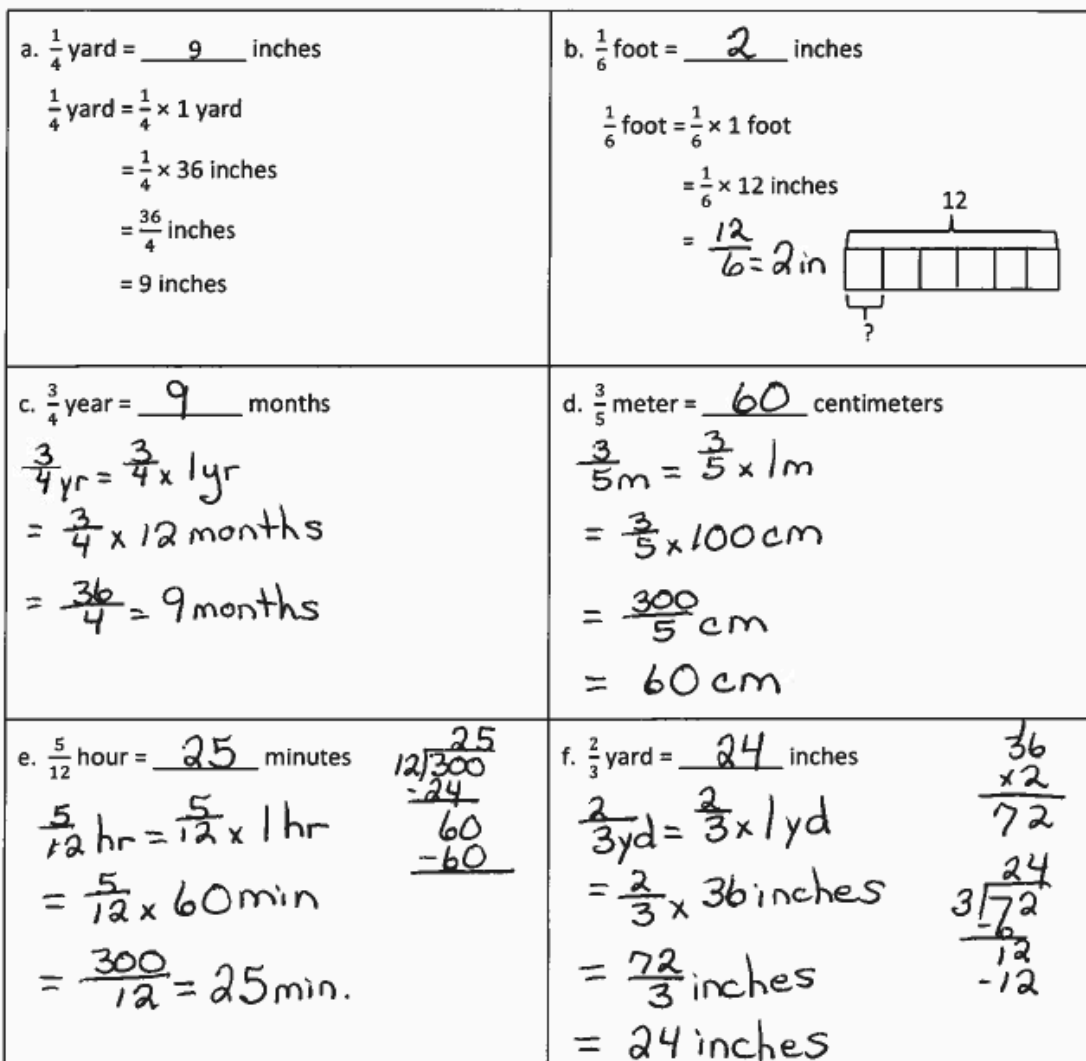 a. 1/4 yard = 9 inches
1/4 yard = 1/4 × 1 yard
= 1/4 × 36 inches
= 36/4 inches
= 9 inches
b. 1/6 foot = 2 inches
1/6 foot = 1/6 × 1 foot
= 1/6 × 12 inches
= 12/6 = 2 in
12
?
c. 3/4 year = 9 months
3/4 yr = 3/4 × 1 yr
= 3/4 × 12 months
= 36/4 = 9 months
d. 3/5 meter = 60 centimeters
3/5 m = 3/5 × 1 m
= 3/5 × 100 cm
= 300/5 cm
= 60 cm
e. 5/12 hour = 25 minutes
5/12 hr = 5/12 × 1 hr
= 5/12 × 60 min
= 300/12 = 25 min.
25
12)300
-24
60
-60
f. 2/3 yard = 24 inches
2/3 yd = 2/3 × 1 yd
= 2/3 × 36 inches
= 72/3 inches
= 24 inches
1
36
×2
72
24
3)72
-6
12
-12